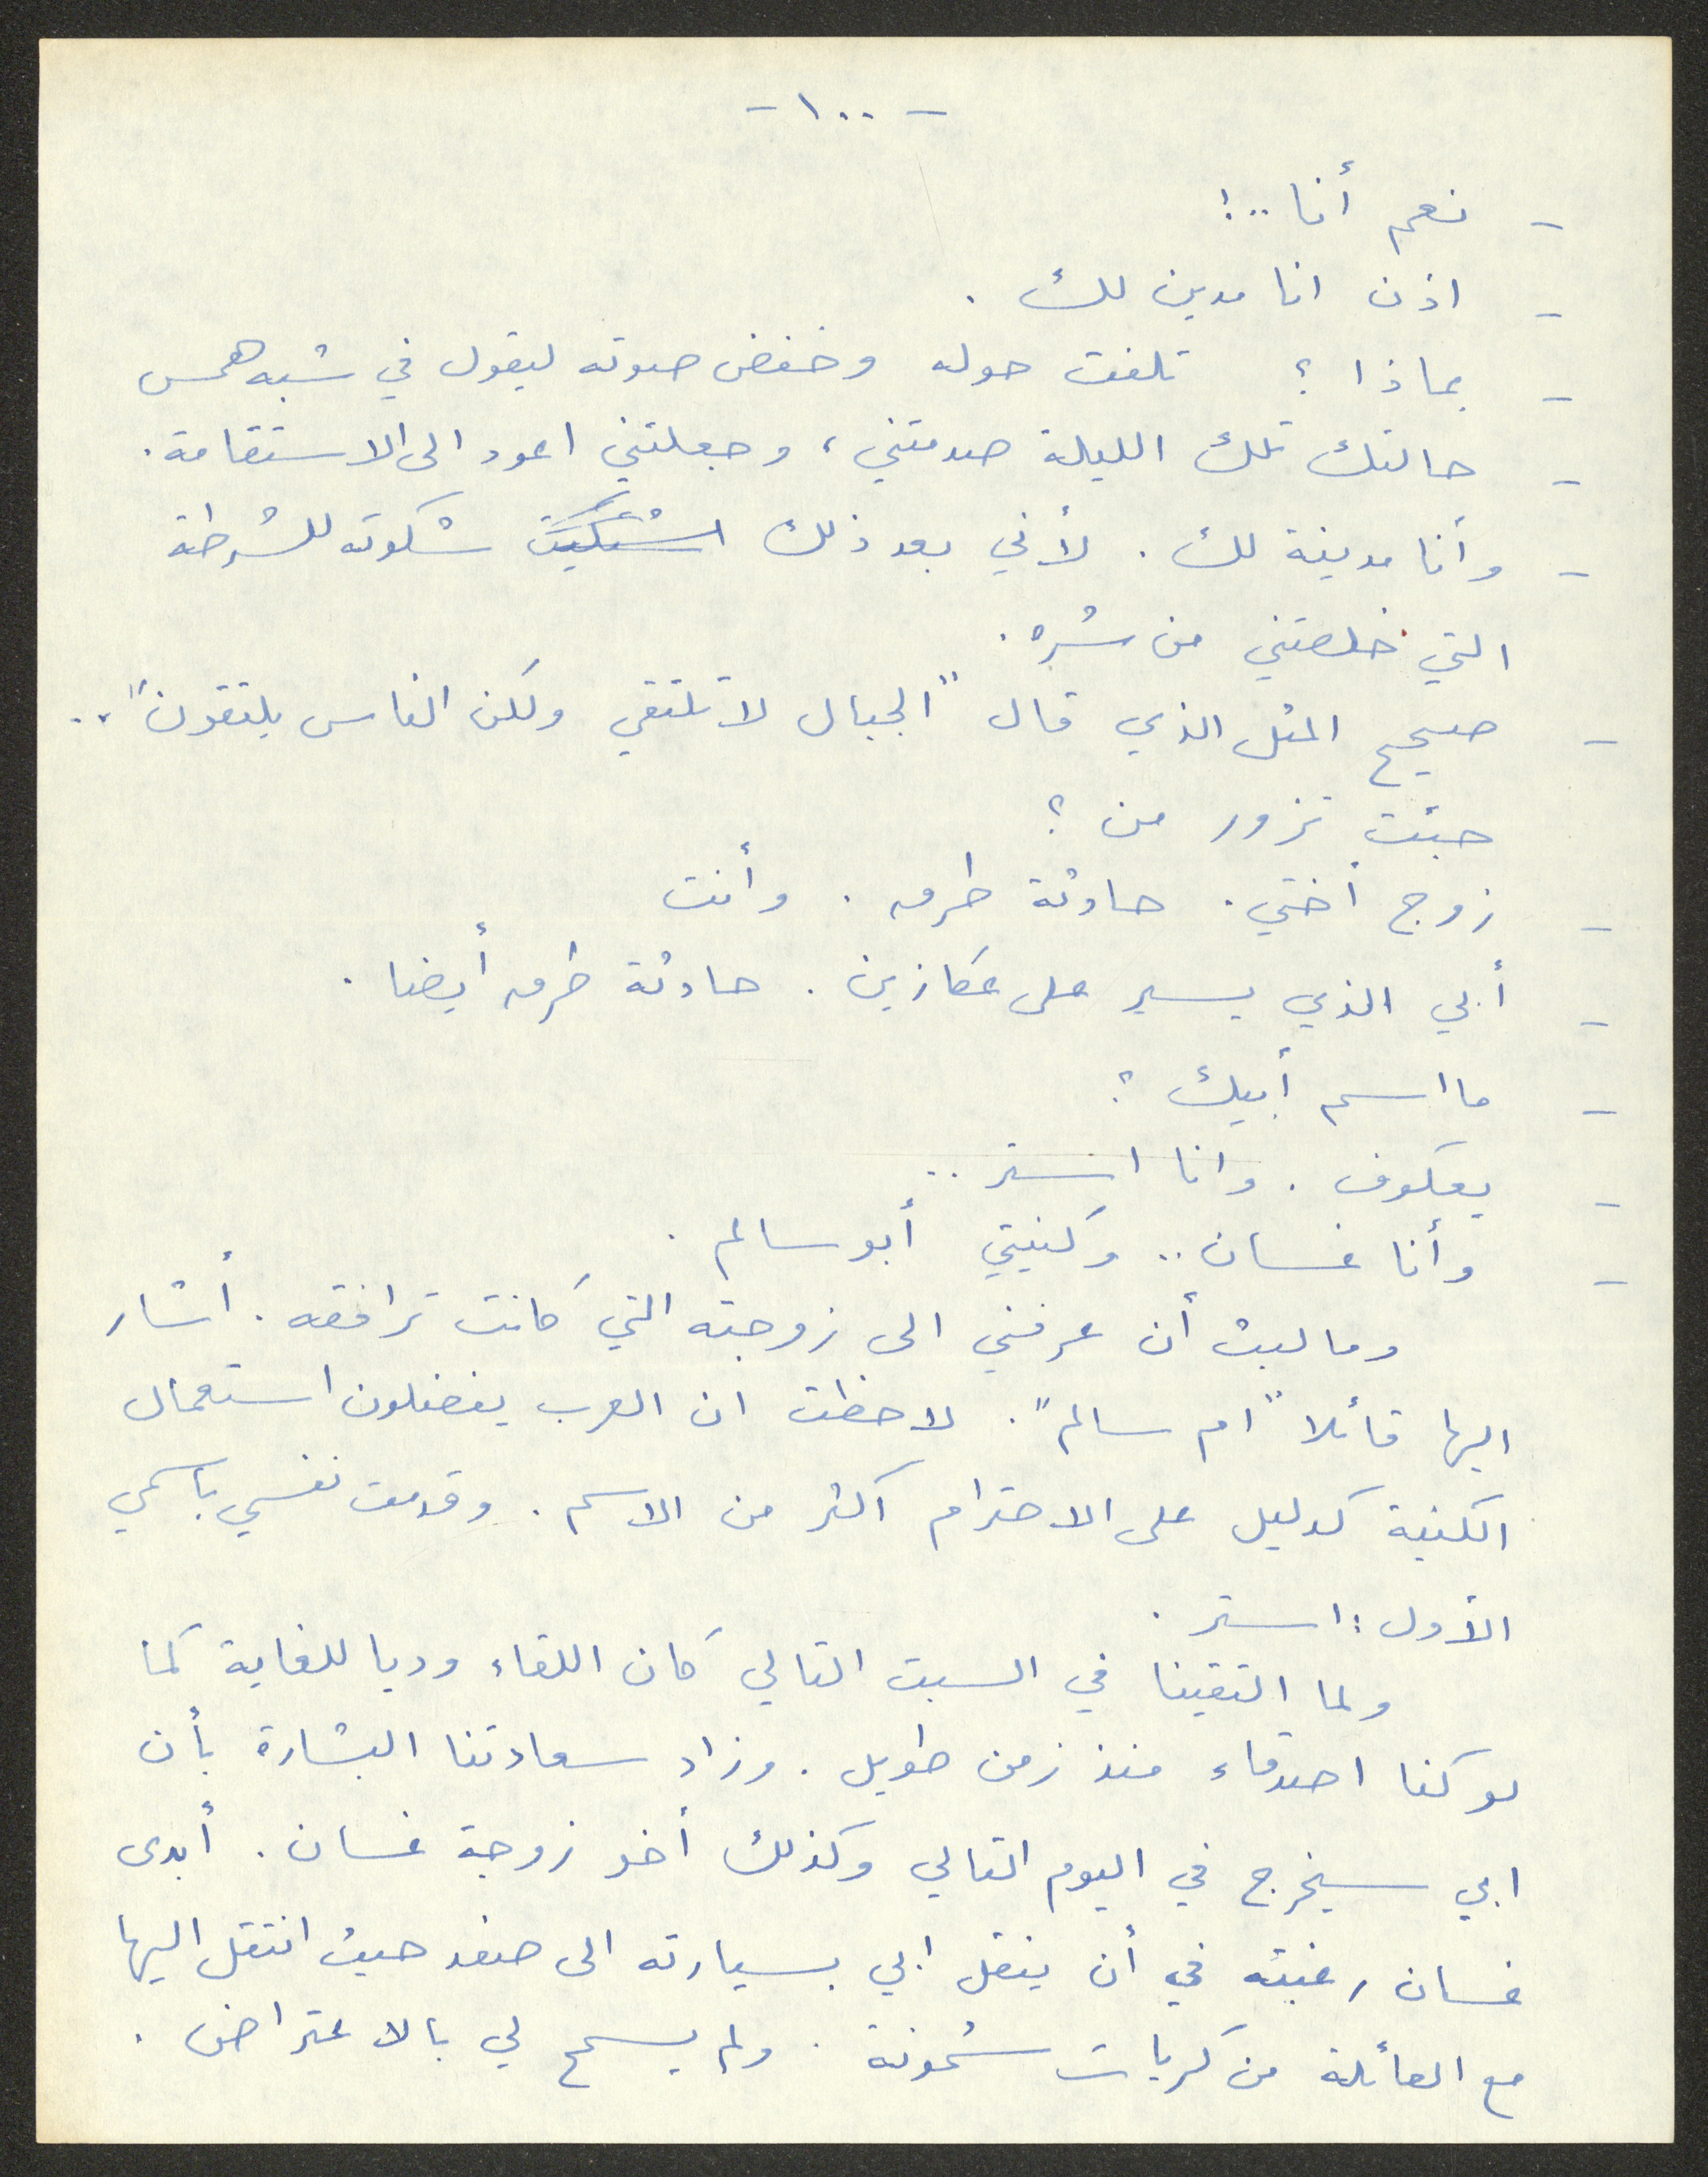 - ١٠٠ -
- نعم أنا ..!
- اذن انا مدين لك .
- بماذا ؟ تلفت حوله وخفض صوته ليقول في شبه همس
- حالتك تلك الليلة صدمتني ، وجعلتني اعود الى الاستقامة .
- وأنا مدينة لك . لأني بعد ذلك اشتكيت شكوته للشرطة
التي خلصتني من شره .
- صحيح المثل الذي قال "الجبال لا تلتقي ولكن الناس يلتقون" ..
جئت تزور من ؟
- زوج أختي . حادثة طرق . وأنت
- أبي الذي يسير على عكازين . حادثة طرق أيضا .
- ما اسم أبيك ؟
- يعكوف . وانا استر ..
- وأنا غسان .. وكنيتي أبو سالم .
وما لبث أن عرفني الى زوجته التي كانت ترافقه . أشار
اليها قائلا "ام سالم" . لاحظت ان العرب يفضلون استعمال
الكنية كدليل على الاحترام اكثر من الاسم . وقدمت نفسي باسمي
الأول : استر .
ولما التقينا في السبت التالي كان اللقاء وديا للغاية كما
لو كنا اصدقاء منذ زمن طويل . وزاد سعادتنا البشارة بأن
ابي سيخرج في اليوم التالي وكذلك أخو زوجة غسان . أبدى
غسان رغبته في أن ينقل ابي بسيارته الى صفد حيث انتقل اليها
مع العائلة من كريات شمونة . ولم يسمح لي بالاعتراض .